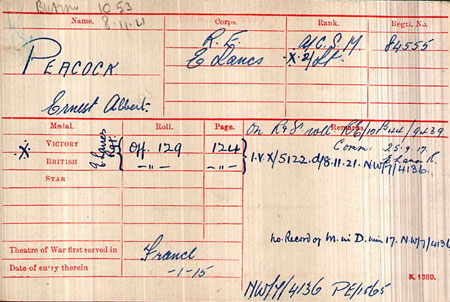 10 53
8.11.21
Name. Corps. Rank. Regtl. No.
PEACOCK R.E. A/C.S.M. 84555
E Lancs X 2/Lt.
Ernest Albert.
Medal. Roll. Page. Remarks.
On R.E's roll 44/9439
X. VICTORY E Lancs Rgt. Off. 129 124 Comm. 25-9-17.
BRITISH -"- -"- I.V.X/5122.d/8.11.21. NW/7/4136.
E Lancs R.
STAR
No Record of M. in D. in 17. NW/7/4136
Theatre of War first served in France
Date of entry therein -1-15
K. 1380.
NW/7/4136 PE/1565